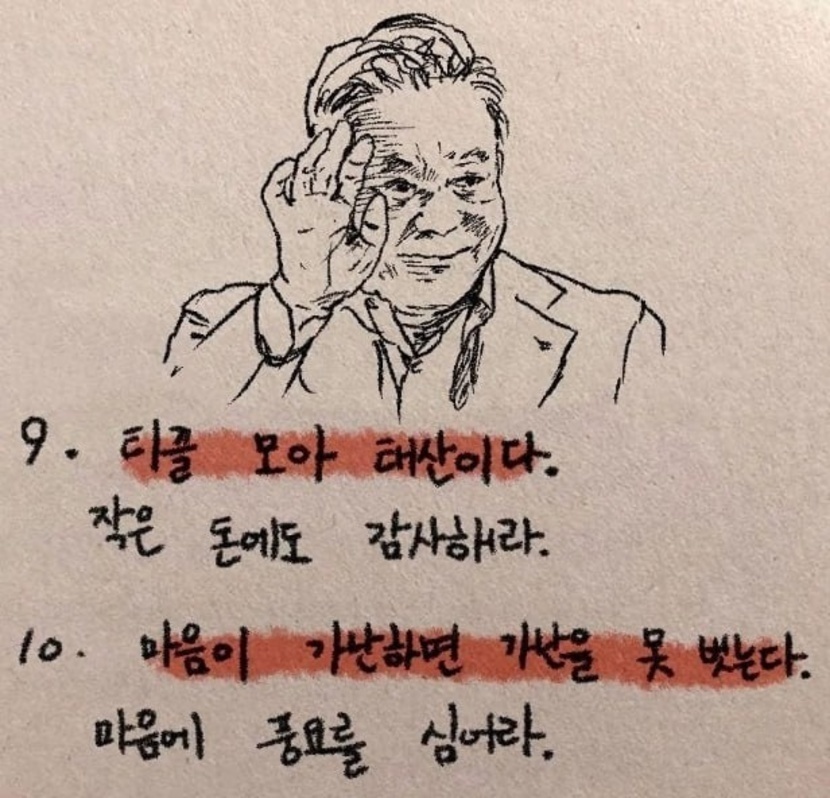 9. 티끌 모아 태산이다.
작은 돈에도 감사해라.
10. 마음이 가난하면 가난을 못 벗는다.
마음에 풍요를 심어라.